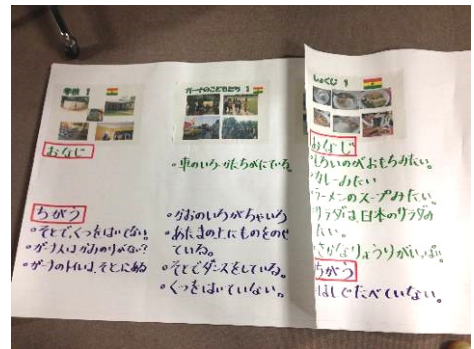 学校 1
おなじ
ちがう
・そとで、くつをはいてない。
・ガーナ人は
・ガーナのトイレは、そとにある
ガーナのこどもたち 1
・車のいろ・かたちがにている。
・かおのいろがちゃいろ
・あたまの上にものをのせ
ている。
・そとでダンスをしている。
・くつをはいていない。
しょくじ 1
おなじ
・しろいのがおもちみたい。
・カレーみたい
・ラーメンのスープみたい。
・サラダは日本のサラダみ
たい。
・さかなりょうりがいっぱい。
ちがう
・はしでたべていない。